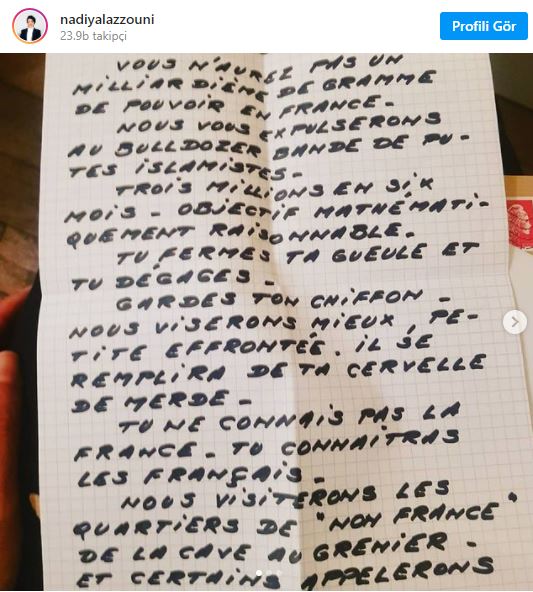 nadiyalazzouni
23.9b takipçi
Profili Gör
VOUS N'AUREZ PAS UN
MILLIARDIÈME DE GRAMME
DE POUVOIR EN FRANCE -
NOUS VOUS EXPULSERONS
AU BULLDOZER BANDE DE PU-
TES ISLAMISTES -
TROIS MILLIONS EN SIX
MOIS - OBJECTIF MATHÉMATI-
QUEMENT RAISONNABLE -
TU FERMES TA GUEULE ET
TU DÉGAGES -
GARDES TON CHIFFON -
NOUS VISERONS MIEUX, PE-
TITE EFFRONTÉE. IL SE
REMPLIRA DE TA CERVELLE
DE MERDE -
TU NE CONNAIS PAS LA
FRANCE - TU CONNAITRAS
LES FRANÇAIS -
NOUS VISITERONS LES
QUARTIERS DE "NON FRANCE"
DE LA CAVE AU GRENIER -
ET CERTAINS APPELERONS